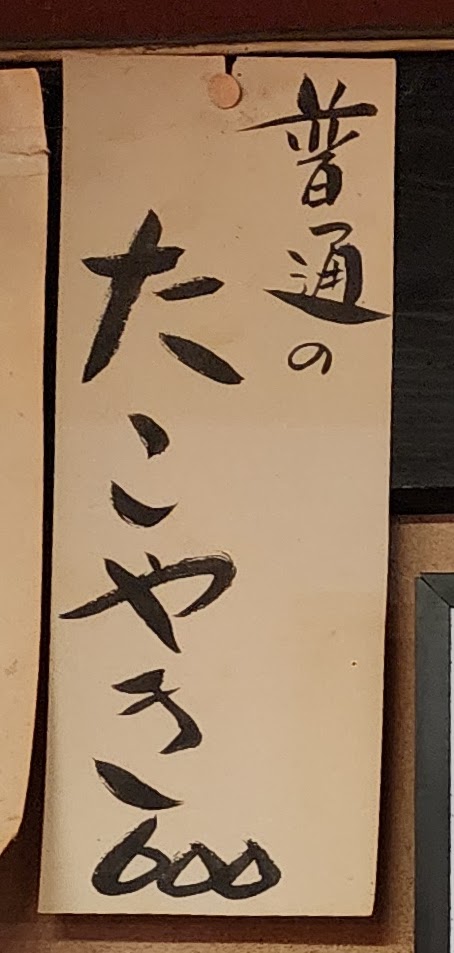 普通の
たこやき600